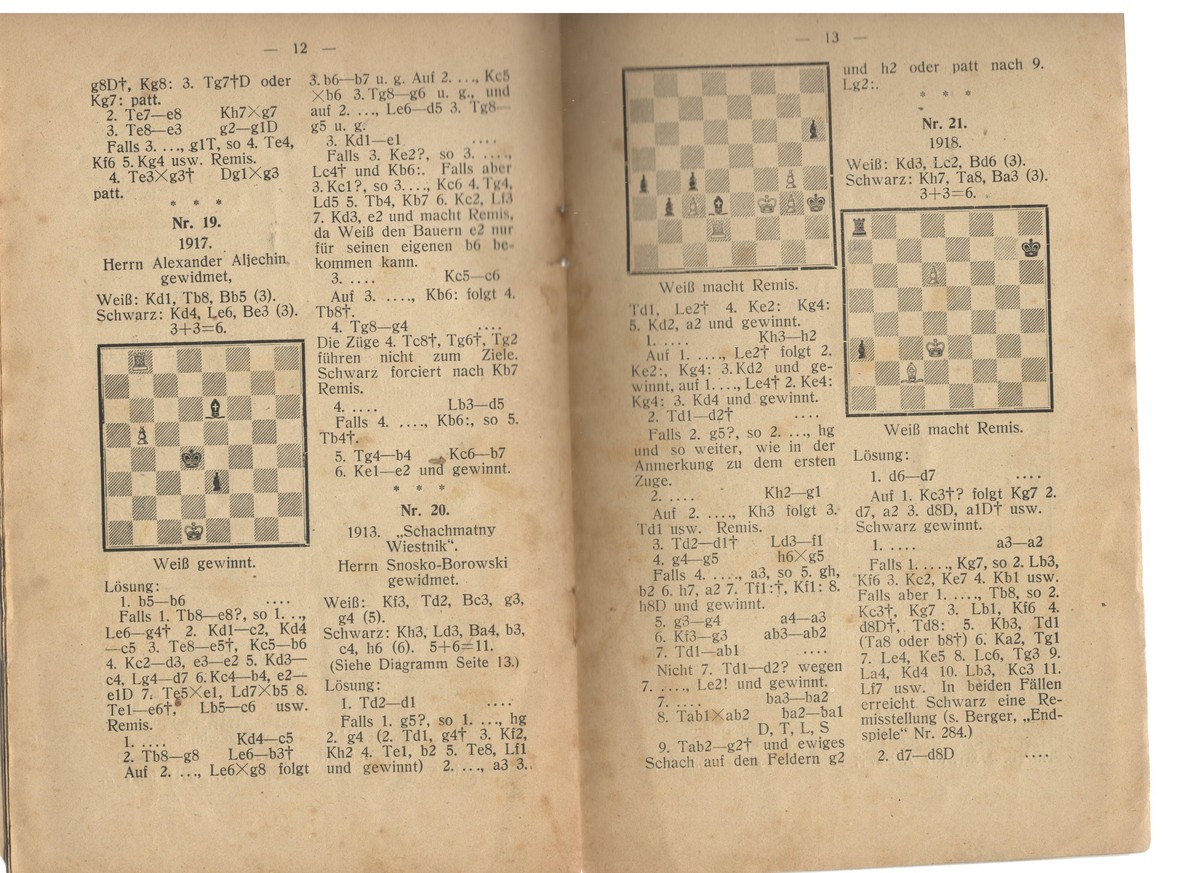 — 12 —
g8D†, Kg8: 3. Tg7†D oder
Kg7: patt.
2. Te7—e8 Kh7×g7
3. Te8—e3 g2—g1D
Falls 3. ..., g1T, so 4. Te4,
Kf6 5. Kg4 usw. Remis.
4. Te3×g3† Dg1×g3
patt.
* * *
Nr. 19.
1917.
Herrn Alexander Aljechin
gewidmet,
Weiß: Kd1, Tb8, Bb5 (3).
Schwarz: Kd4, Le6, Be3 (3).
3+3=6.
Weiß gewinnt.
Lösung:
1. b5—b6 ....
Falls 1. Tb8—e8?, so 1. ..,
Le6—g4† 2. Kd1—c2, Kd4
—c5 3. Te8—e5†, Kc5—b6
4. Kc2—d3, e3—e2 5. Kd3—
c4, Lg4—d7 6. Kc4—b4, e2—
e1D 7. Te5×e1, Ld7×b5 8.
Te1—e6†, Lb5—c6 usw.
Remis.
1. .... Kd4—c5
2. Tb8—g8 Le6—b3†
Auf 2. ..., Le6×g8 folgt
3. b6—b7 u. g. Auf 2. ..., Kc5
×b6 3. Tg8—g6 u. g., und
auf 2. ..., Le6—d5 3. Tg8—
g5 u. g.
3. Kd1—e1 ....
Falls 3. Ke2?, so 3. ....,
Lc4† und Kb6:. Falls aber
3. Kc1?, so 3...., Kc6 4. Tg4,
Ld5 5. Tb4, Kb7 6. Kc2, Lf3
7. Kd3, e2 und macht Remis,
da Weiß den Bauern e2 nur
für seinen eigenen b6 be-
kommen kann.
3. .... Kc5—c6
Auf 3. ...., Kb6: folgt 4.
Tb8†.
4. Tg8—g4 ....
Die Züge 4. Tc8†, Tg6†, Tg2
führen nicht zum Ziele.
Schwarz forciert nach Kb7
Remis.
4. .... Lb3—d5
Falls 4. ...., Kb6:, so 5.
Tb4†.
5. Tg4—b4 Kc6—b7
6. Ke1—e2 und gewinnt.
* * *
Nr. 20.
1913. „Schachmatny
Wiestnik“.
Herrn Snosko-Borowski
gewidmet.
Weiß: Kf3, Td2, Bc3, g3,
g4 (5).
Schwarz: Kh3, Ld3, Ba4, b3,
c4, h6 (6). 5+6=11.
(Siehe Diagramm Seite 13.)
Lösung:
1. Td2—d1 ....
Falls 1. g5?, so 1. ..., hg
2. g4 (2. Td1, g4† 3. Kf2,
Kh2 4. Te1, b2 5. Te8, Lf1
und gewinnt) 2. ..., a3 3.
— 13 —
Weiß macht Remis.
Td1, Le2† 4. Ke2: Kg4:
5. Kd2, a2 und gewinnt.
1. .... Kh3—h2
Auf 1. ...., Le2† folgt 2.
Ke2:, Kg4: 3. Kd2 und ge-
winnt, auf 1. ..., Le4† 2. Ke4:
Kg4: 3. Kd4 und gewinnt.
2. Td1—d2† ....
Falls 2. g5?, so 2. ..., hg
und so weiter, wie in der
Anmerkung zu dem ersten
Zuge.
2. .... Kh2—g1
Auf 2. ...., Kh3 folgt 3.
Td1 usw. Remis.
3. Td2—d1† Ld3—f1
4. g4—g5 h6×g5
Falls 4. ...., a3, so 5. gh,
b2 6. h7, a2 7. Tf1:†, Kf1: 8.
h8D und gewinnt.
5. g3—g4 a4—a3
6. Kf3—g3 ab3—ab2
7. Td1—ab1 ....
Nicht 7. Td1—d2? wegen
7. ...., Le2! und gewinnt.
7. .... ba3—ba2
8. Tab1×ab2 ba2—ba1
D, T, L, S
9. Tab2—g2† und ewiges
Schach auf den Feldern g2
und h2 oder patt nach 9.
Lg2:.
* * *
Nr. 21.
1918.
Weiß: Kd3, Lc2, Bd6 (3).
Schwarz: Kh7, Ta8, Ba3 (3).
3+3=6.
Weiß macht Remis.
Lösung:
1. d6—d7 ....
Auf 1. Kc3†? folgt Kg7 2.
d7, a2 3. d8D, a1D† usw.
Schwarz gewinnt.
1. .... a3—a2
Falls 1. ...., Kg7, so 2. Lb3,
Kf6 3. Kc2, Ke7 4. Kb1 usw.
Falls aber 1. ...., Tb8, so 2.
Kc3†, Kg7 3. Lb1, Kf6 4.
d8D†, Td8: 5. Kb3, Td1
(Ta8 oder b8†) 6. Ka2, Tg1
7. Le4, Ke5 8. Lc6, Tg3 9.
La4, Kd4 10. Lb3, Kc3 11.
Lf7 usw. In beiden Fällen
erreicht Schwarz eine Re-
misstellung (s. Berger, „End-
spiele“ Nr. 284.)
2. d7—d8D ....